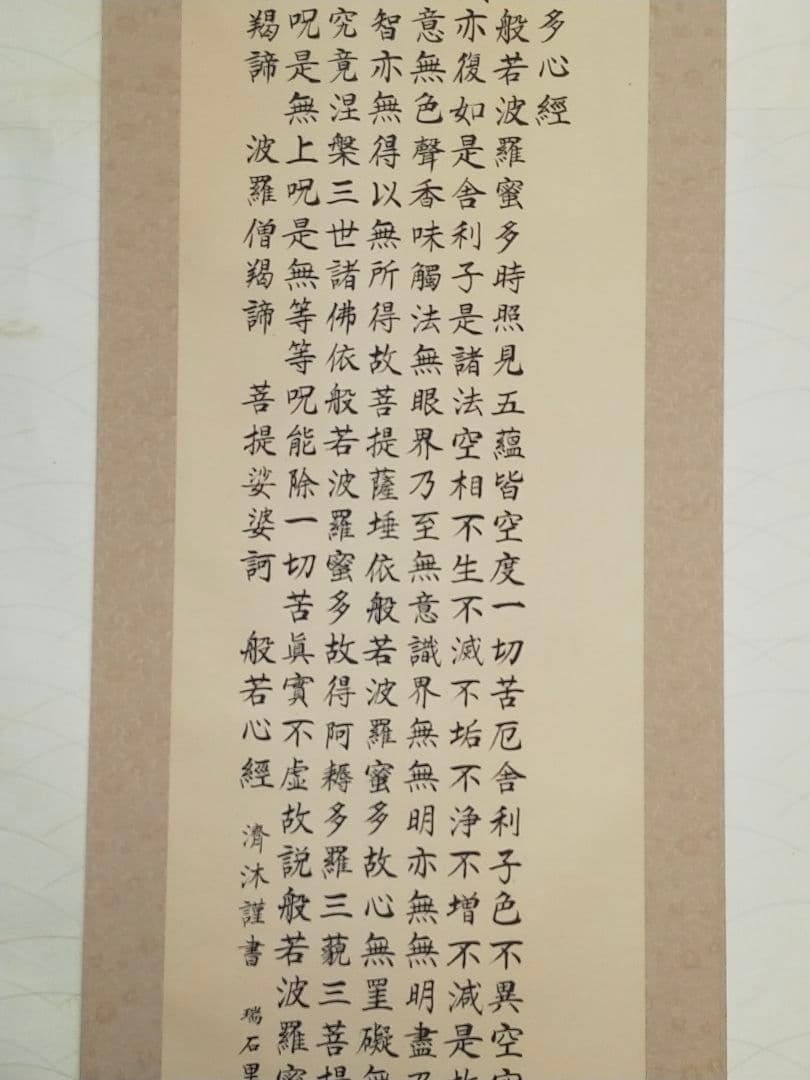 多心經
般若波羅蜜多時照見五蘊皆空度一切苦厄舎利子色不異空
亦復如是舎利子是諸法空相不生不滅不垢不浄不増不減是
意無色聲香味觸法無眼界乃至無意識界無無明亦無無明盡乃
智亦無得以無所得故菩提薩埵依般若波羅蜜多故心無罣礙無
究竟涅槃三世諸佛依般若波羅蜜多故得阿耨多羅三藐三菩提
呪是無上呪是無等等呪能除一切苦眞實不虛故説般若波羅蜜
羯諦 波羅僧羯諦 菩提娑婆訶 般若心經 濟沐謹書 瑞石里